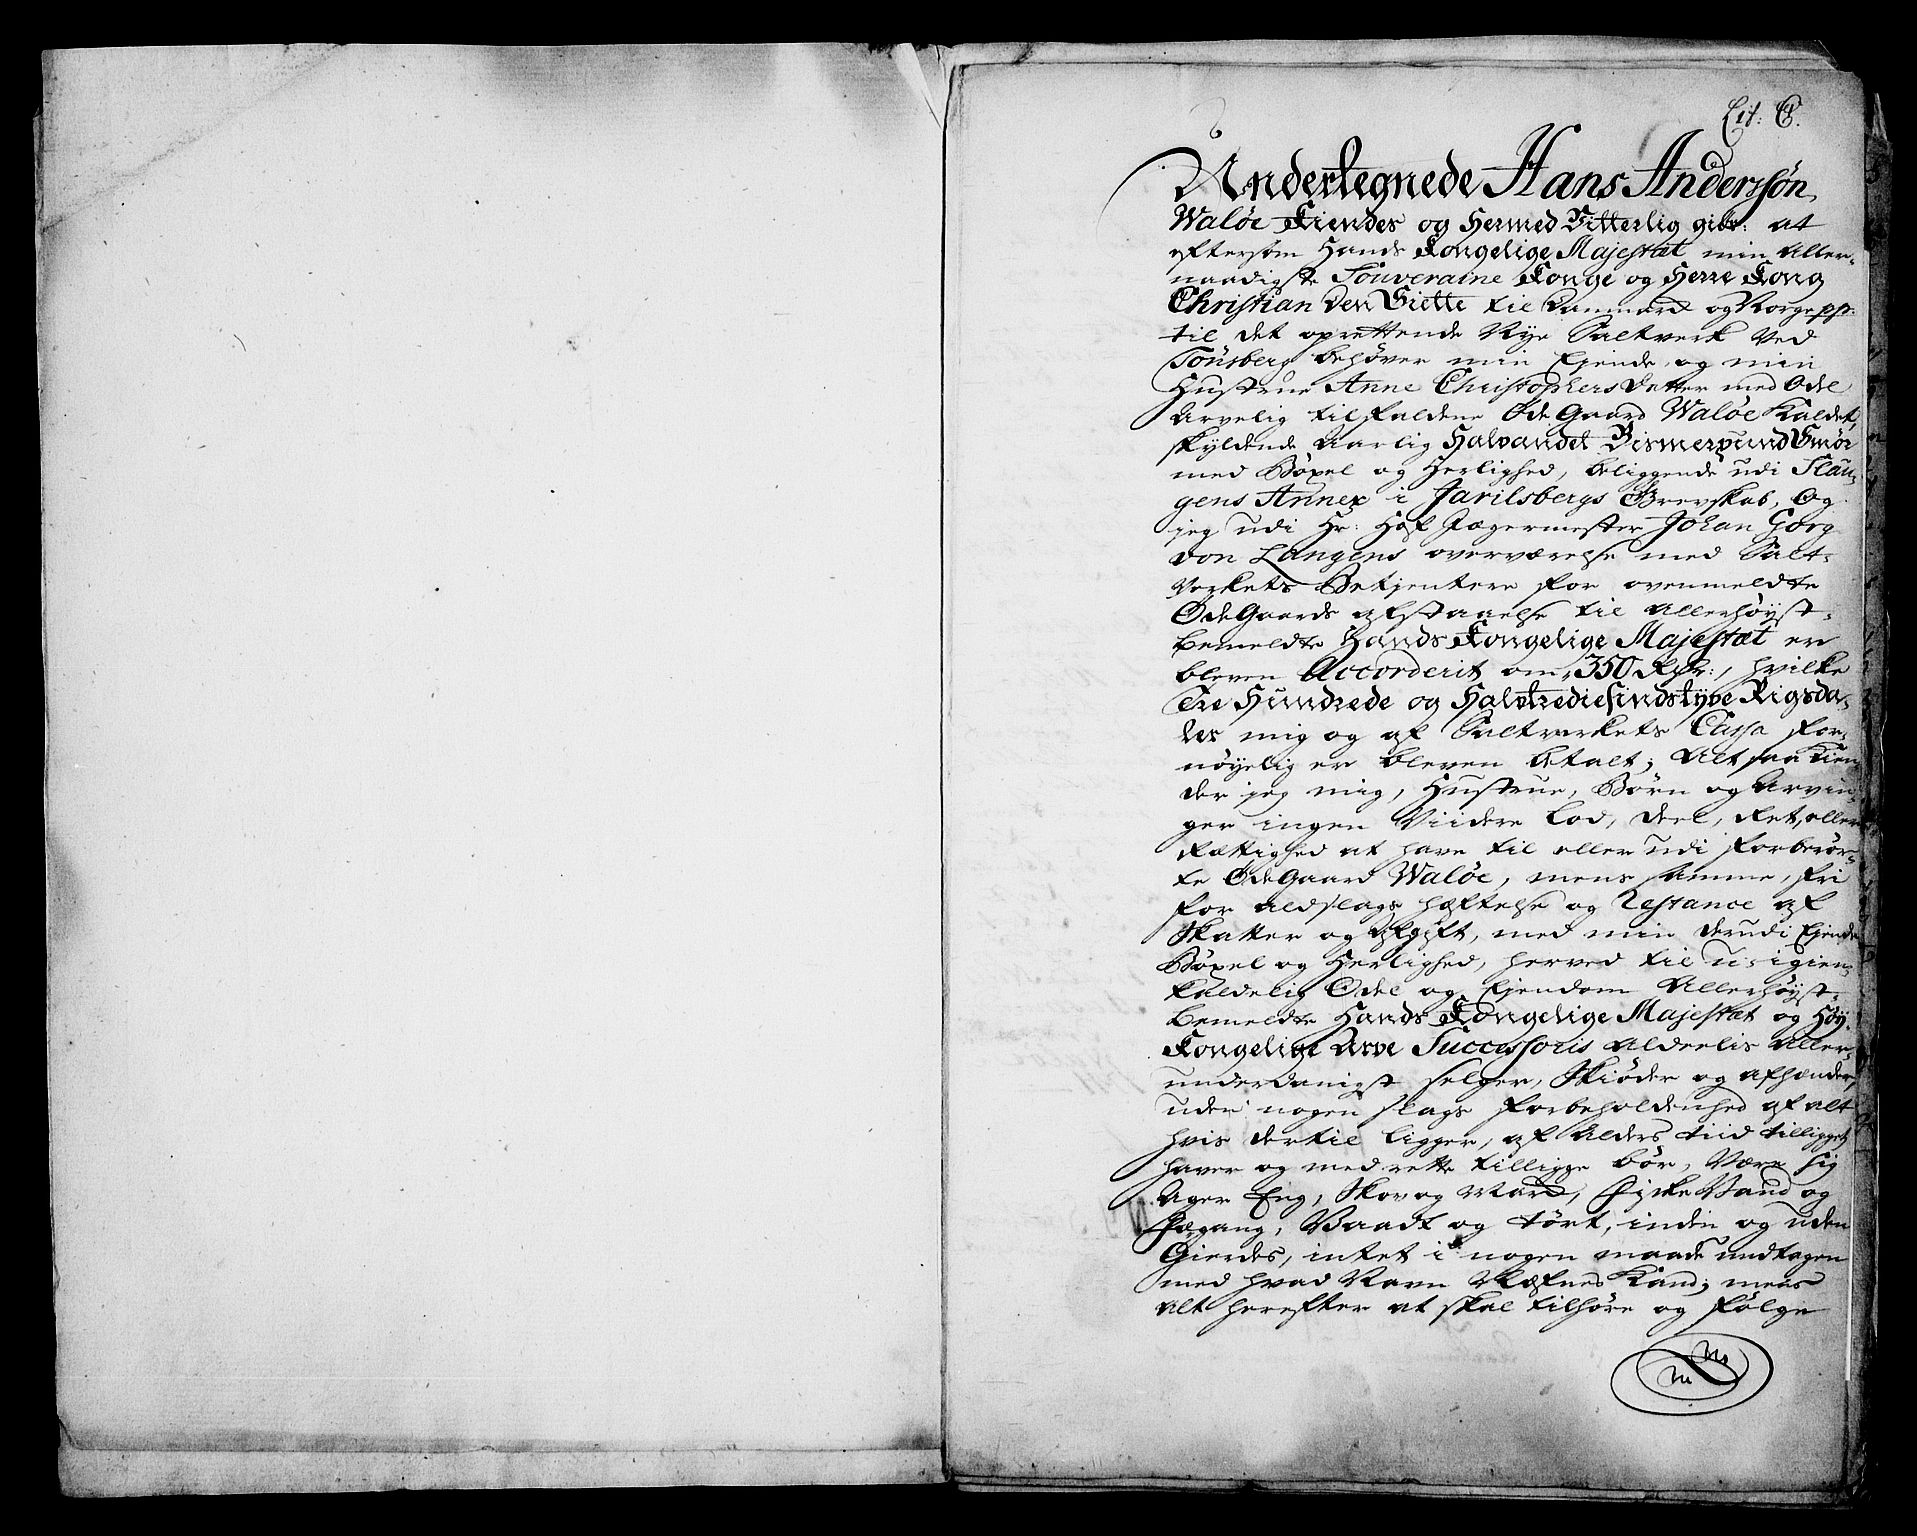 Lit: C.
Undertegnede Hans Anderssøn
Waløe Kiendes og Hermed Vitterlig giør: at
eftersom Hands Kongelige Majestæt min Aller-
naadigste Souveraine Konge og Herre Kong
Christian den Siette til Danmark og Norge pp:
til det oprettende Nye Saltverk Ved
Tönsberg behøver min Ejende, og min
Hustrue Anne Christophers Datter med Odel
Arvelig tilfaldene Øde Gaard Waløe Kaldet,
skyldende Aarlig Halvandet Bismerpund Smør
med Bøxel og Herlighed, beliggende udi Slau-
gens Annex i Jarilsbergs Grevskab, Og
jeg udi Hr: Hof Jægermester Johan Georg
von Langens overværelse med Salt-
Verkets Betjentere for ovenmeldte
ØdeGaards afstaaelse til Allerhøyst-
bemeldte Hands Kongelige Majestæt er
bleven Accorderit om 350 Rdr:, hvilke
Tre Hundrede og Halvtrediesindstyve Rigsda-
ler mig og af Saltverkets Cassa for-
nøyelig er bleven betalt; Alt saa Kien-
der jeg mig, Hustrue, Børn og Arvin-
ger ingen Viidere Lod, Deel, Ret, eller
Rættighed at have til eller udi forberør-
te ØdeGaard Waløe, mens samme, fri
for aldslags hæftelse og Restance af
Skatter og Afgift, med min derudi Ejende
Bøxel og Herlighed, herved til u-igien-
kaldelig Odel og Ejendom Allerhøyst-
bemeldte Hands Kongelige Majestæt og Høy
Kongelige Arve Successoris aldeelis Aller-
underdanigst selger, Skiøder og afhænder,
uden nogen slags forbeholdenhed af alt
hvis dertil ligger, af Alders tiid tilligget
haver og med rette tilligge bør, Være sig
Ager Eng, Skov og Mark, Fiske Vand og
Fægang, Vaadt og tört, inden og uden
Gierdes, intet i nogen maade undtagen
med hvad Navn Næfnes Kand; mens
alt herefter at skal tilhøre og følge